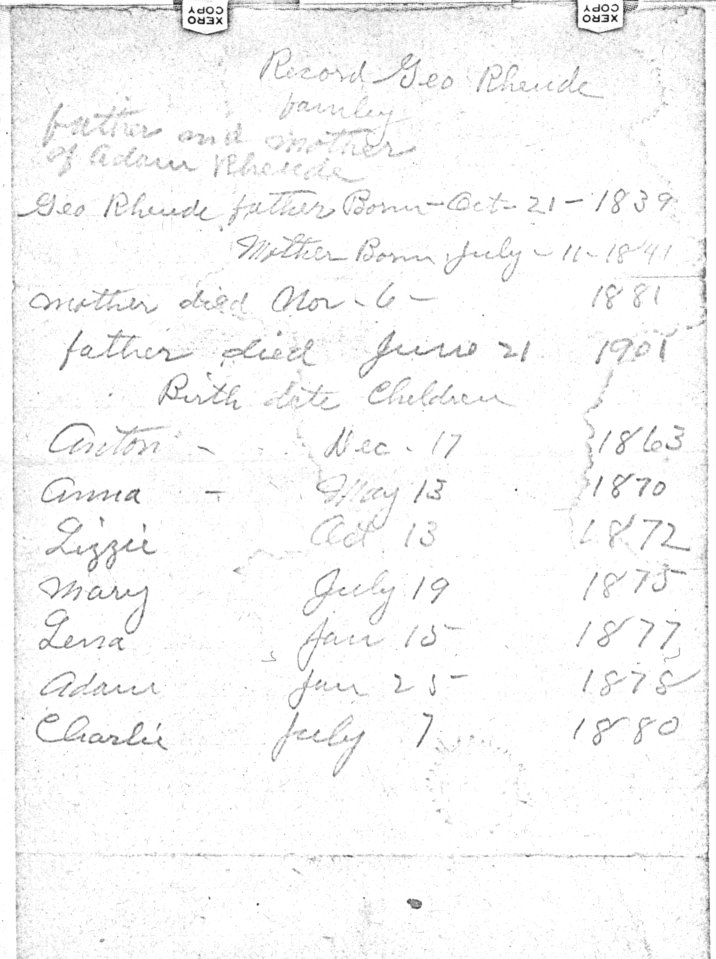 XERO
COPY
XERO
COPY
Record Geo Rheude
famley
father and mother
of Adam Rheude
Geo Rheude father Born - Oct - 21 - 1839
Mother Born July - 11 - 1841
mother died Nov - 6 - 1881
father died June 21 1901
Birth date Children
Anton - Dec - 17 1863
Anna - May 13 1870
Lizzie Oct 13 1872
Mary July 19 1875
Lena Jan 15 1877
Adam Jan 25 1878
Charlie July 7 1880